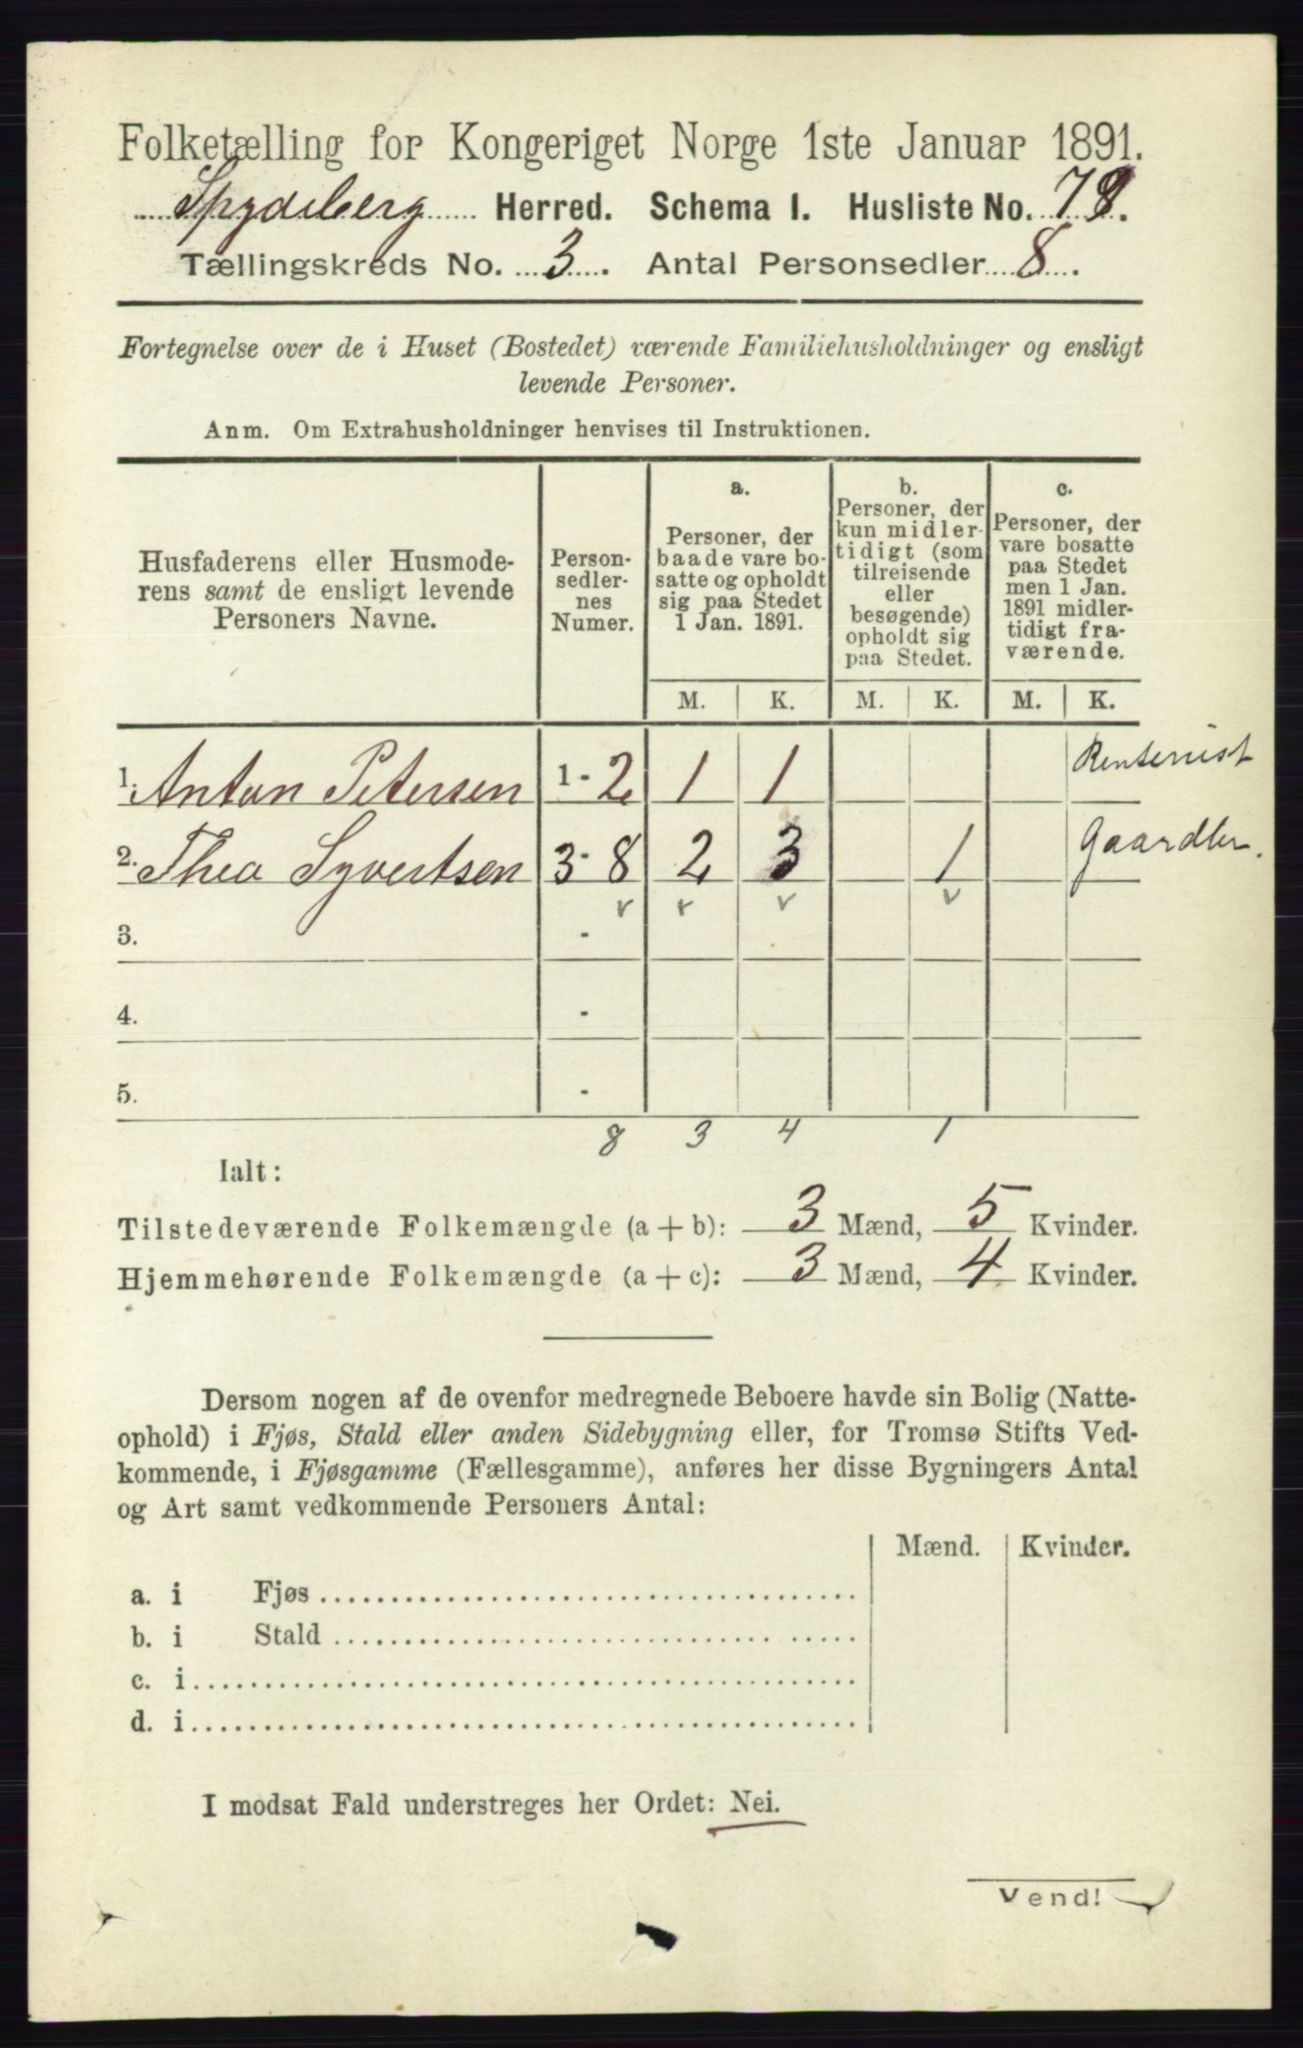 Folketælling for Kongeriget Norge 1ste Januar 1891.
Spydeberg Herred. Schema I. Husliste No. 79.
Tællingskreds No. 3. Antal Personsedler 8.
Fortegnelse over de i Huset (Bostedet) værende Familiehusholdninger og ensligt
levende Personer.
Anm. Om Extrahusholdninger henvises til Instruktionen.
Husfaderens eller Husmode-
rens samt de ensligt levende
Personers Navne.
Person-
sedler-
nes
Numer.
a.
Personer, der
baade vare bo-
satte og opholdt
sig paa Stedet
1 Jan. 1891.
b.
Personer, der
kun midler-
tidigt (som
tilreisende
eller
besøgende)
opholdt sig
paa Stedet.
c.
Personer, der
vare bosatte
paa Stedet
men 1 Jan.
1891 midler-
tidigt fra-
værende.
M. K. M. K. M. K.
1. Anton Petersen 1 - 2 1 1 Rentenist
2. Thea Syvertsen 3 - 8 2 3 1 Gaardbr.
3. -
4. -
5. -
8 3 4 1
Ialt:
Tilstedeværende Folkemængde (a + b): 3 Mænd, 5 Kvinder.
Hjemmehørende Folkemængde (a + c): 3 Mænd, 4 Kvinder.
Dersom nogen af de ovenfor medregnede Beboere havde sin Bolig (Natte-
ophold) i Fjøs, Stald eller anden Sidebygning eller, for Tromsø Stifts Ved-
kommende, i Fjøsgamme (Fællesgamme), anføres her disse Bygningers Antal
og Art samt vedkommende Personers Antal:
Mænd. Kvinder.
a. i Fjøs
b. i Stald
c. i
d. i
I modsat Fald understreges her Ordet: Nei.
Vend!